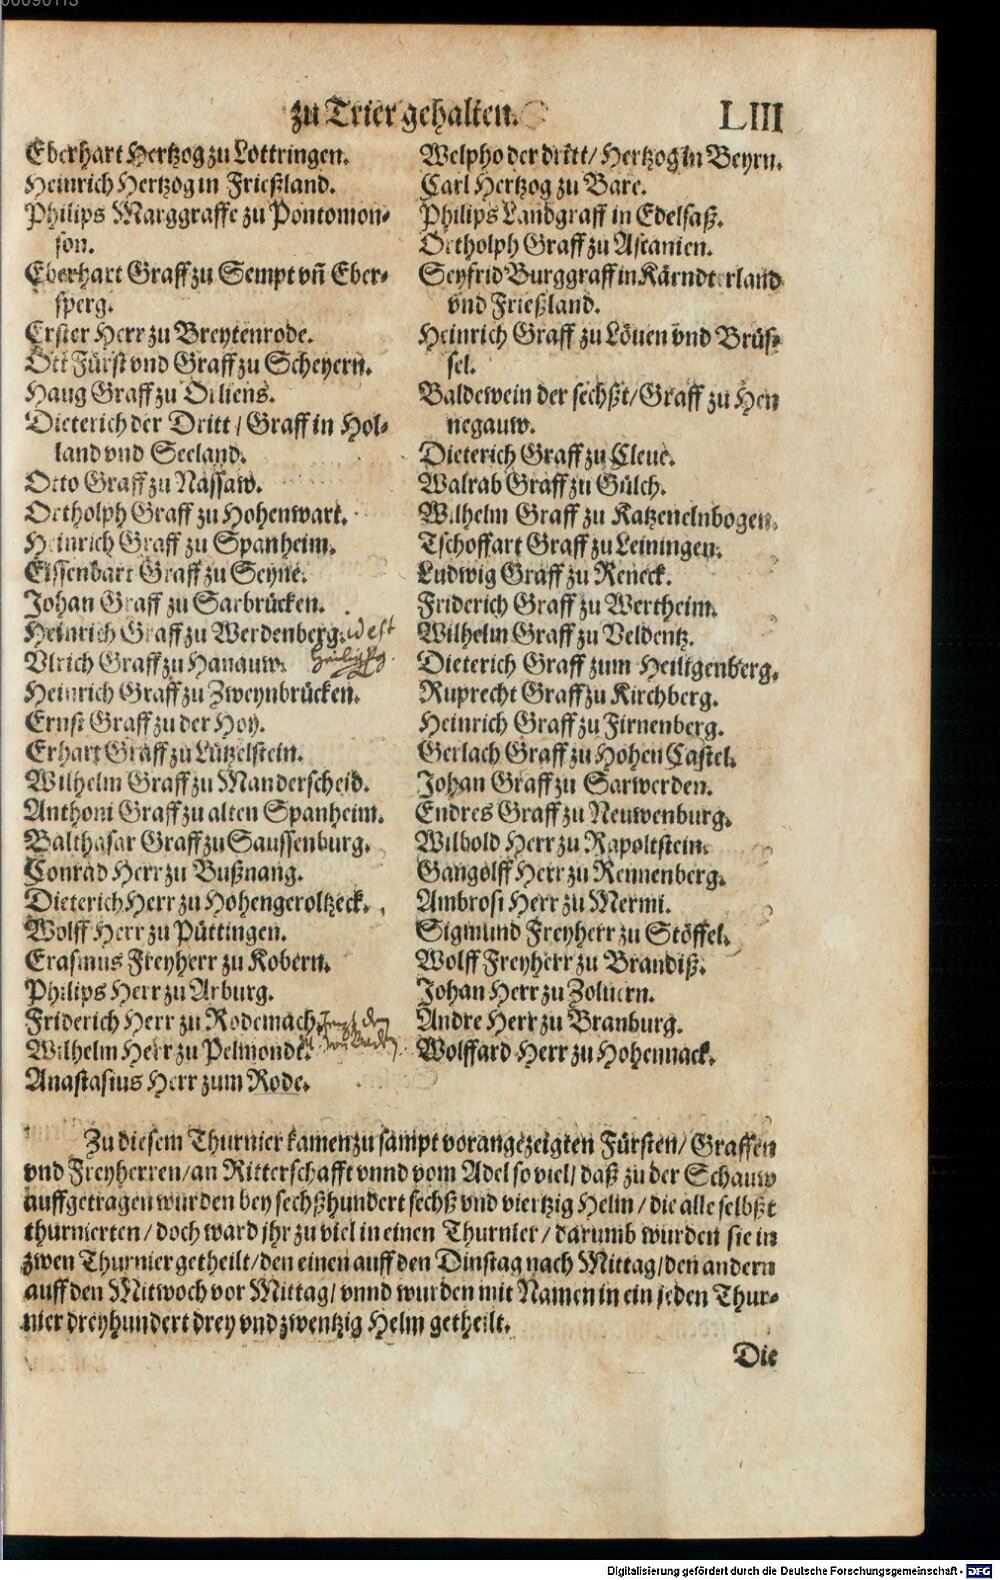 zu Trier gehalten. LIII
Eberhart Hertzog zu Lottringen.
Heinrich Hertzog in Frießland.
Philips Marggraffe zu Pontomon-
son.
Eberhart Graff zu Sempt vñ Eber-
sperg.
Erster Herr zu Breytenrode.
Ott Fürst vnd Graff zu Scheyern.
Haug Graff zu Orliens.
Dieterich der Dritt / Graff in Hol-
land vnd Seeland.
Otto Graff zu Nassaw.
Ortholph Graff zu Hohenwart.
Heinrich Graff zu Spanheim.
Eissenbart Graff zu Seyne.
Johan Graff zu Sarbrücken.
Heinrich Graff zu Werdenberg. id est
Vlrich Graff zu Hanauw.
Heinrich Graff zu Zweynbrücken.
Ernst Graff zu der Hoy.
Erhart Graff zu Lützelstein.
Wilhelm Graff zu Manderscheid.
Anthoni Graff zu alten Spanheim.
Balthasar Graff zu Saussenburg.
Conrad Herr zu Bußnang.
Dieterich Herr zu Hohengeroltzeck.
Wolff Herr zu Püttingen.
Erasmus Freyherr zu Kobern.
Philips Herr zu Arburg.
Friderich Herr zu Rodemach.
Wilhelm Herr zu Pelmonde.
Anastasius Herr zum Rode.
Welpho der dritt / Hertzog in Beyrn.
Carl Hertzog zu Bare.
Philips Landgraff in Edelsaß.
Ortholph Graff zu Ascanien.
Seyfrid Burggraff in Kärndterland
vnd Frießland.
Heinrich Graff zu Löuen vnd Brüs-
sel.
Baldewein der sechßt / Graff zu Hen
negauw.
Dieterich Graff zu Cleue.
Walrab Graff zu Gülch.
Wilhelm Graff zu Katzenelnbogen.
Tschoffart Graff zu Leiningen.
Ludwig Graff zu Reneck.
Friderich Graff zu Wertheim.
Wilhelm Graff zu Veldentz.
Dieterich Graff zum Heiligenberg.
Ruprecht Graff zu Kirchberg.
Heinrich Graff zu Firnenberg.
Gerlach Graff zu Hohen Castel.
Johan Graff zu Sarwerden.
Endres Graff zu Neuwenburg.
Wilbold Herr zu Rapoltstein.
Gangolff Herr zu Rennenberg.
Ambrosi Herr zu Mermi.
Sigmund Freyherr zu Stöffel.
Wolff Freyherr zu Brandiß.
Johan Herr zu Zoluern.
Andre Herr zu Branburg.
Wolffard Herr zu Hohennack.
Zu diesem Thurnier kamen zu sampt vorangezeigten Fürsten / Graffen
vnd Freyherren / an Ritterschafft vnnd vom Adel so viel / daß zu der Schauw
auffgetragen wurden bey sechßhundert sechß vnd viertzig Helm / die alle selbßt
thurnierten / doch ward jhr zu viel in einen Thurnier / darumb wurden sie in
zwen Thurnier getheilt / den einen auff den Dinstag nach Mittag / den andern
auff den Mitwoch vor Mittag / vnnd wurden mit Namen in ein jeden Thur-
nier dreyhundert drey vnd zwentzig Helm getheilt.
Die
Digitalisierung gefördert durch die Deutsche Forschungsgemeinschaft - DFG